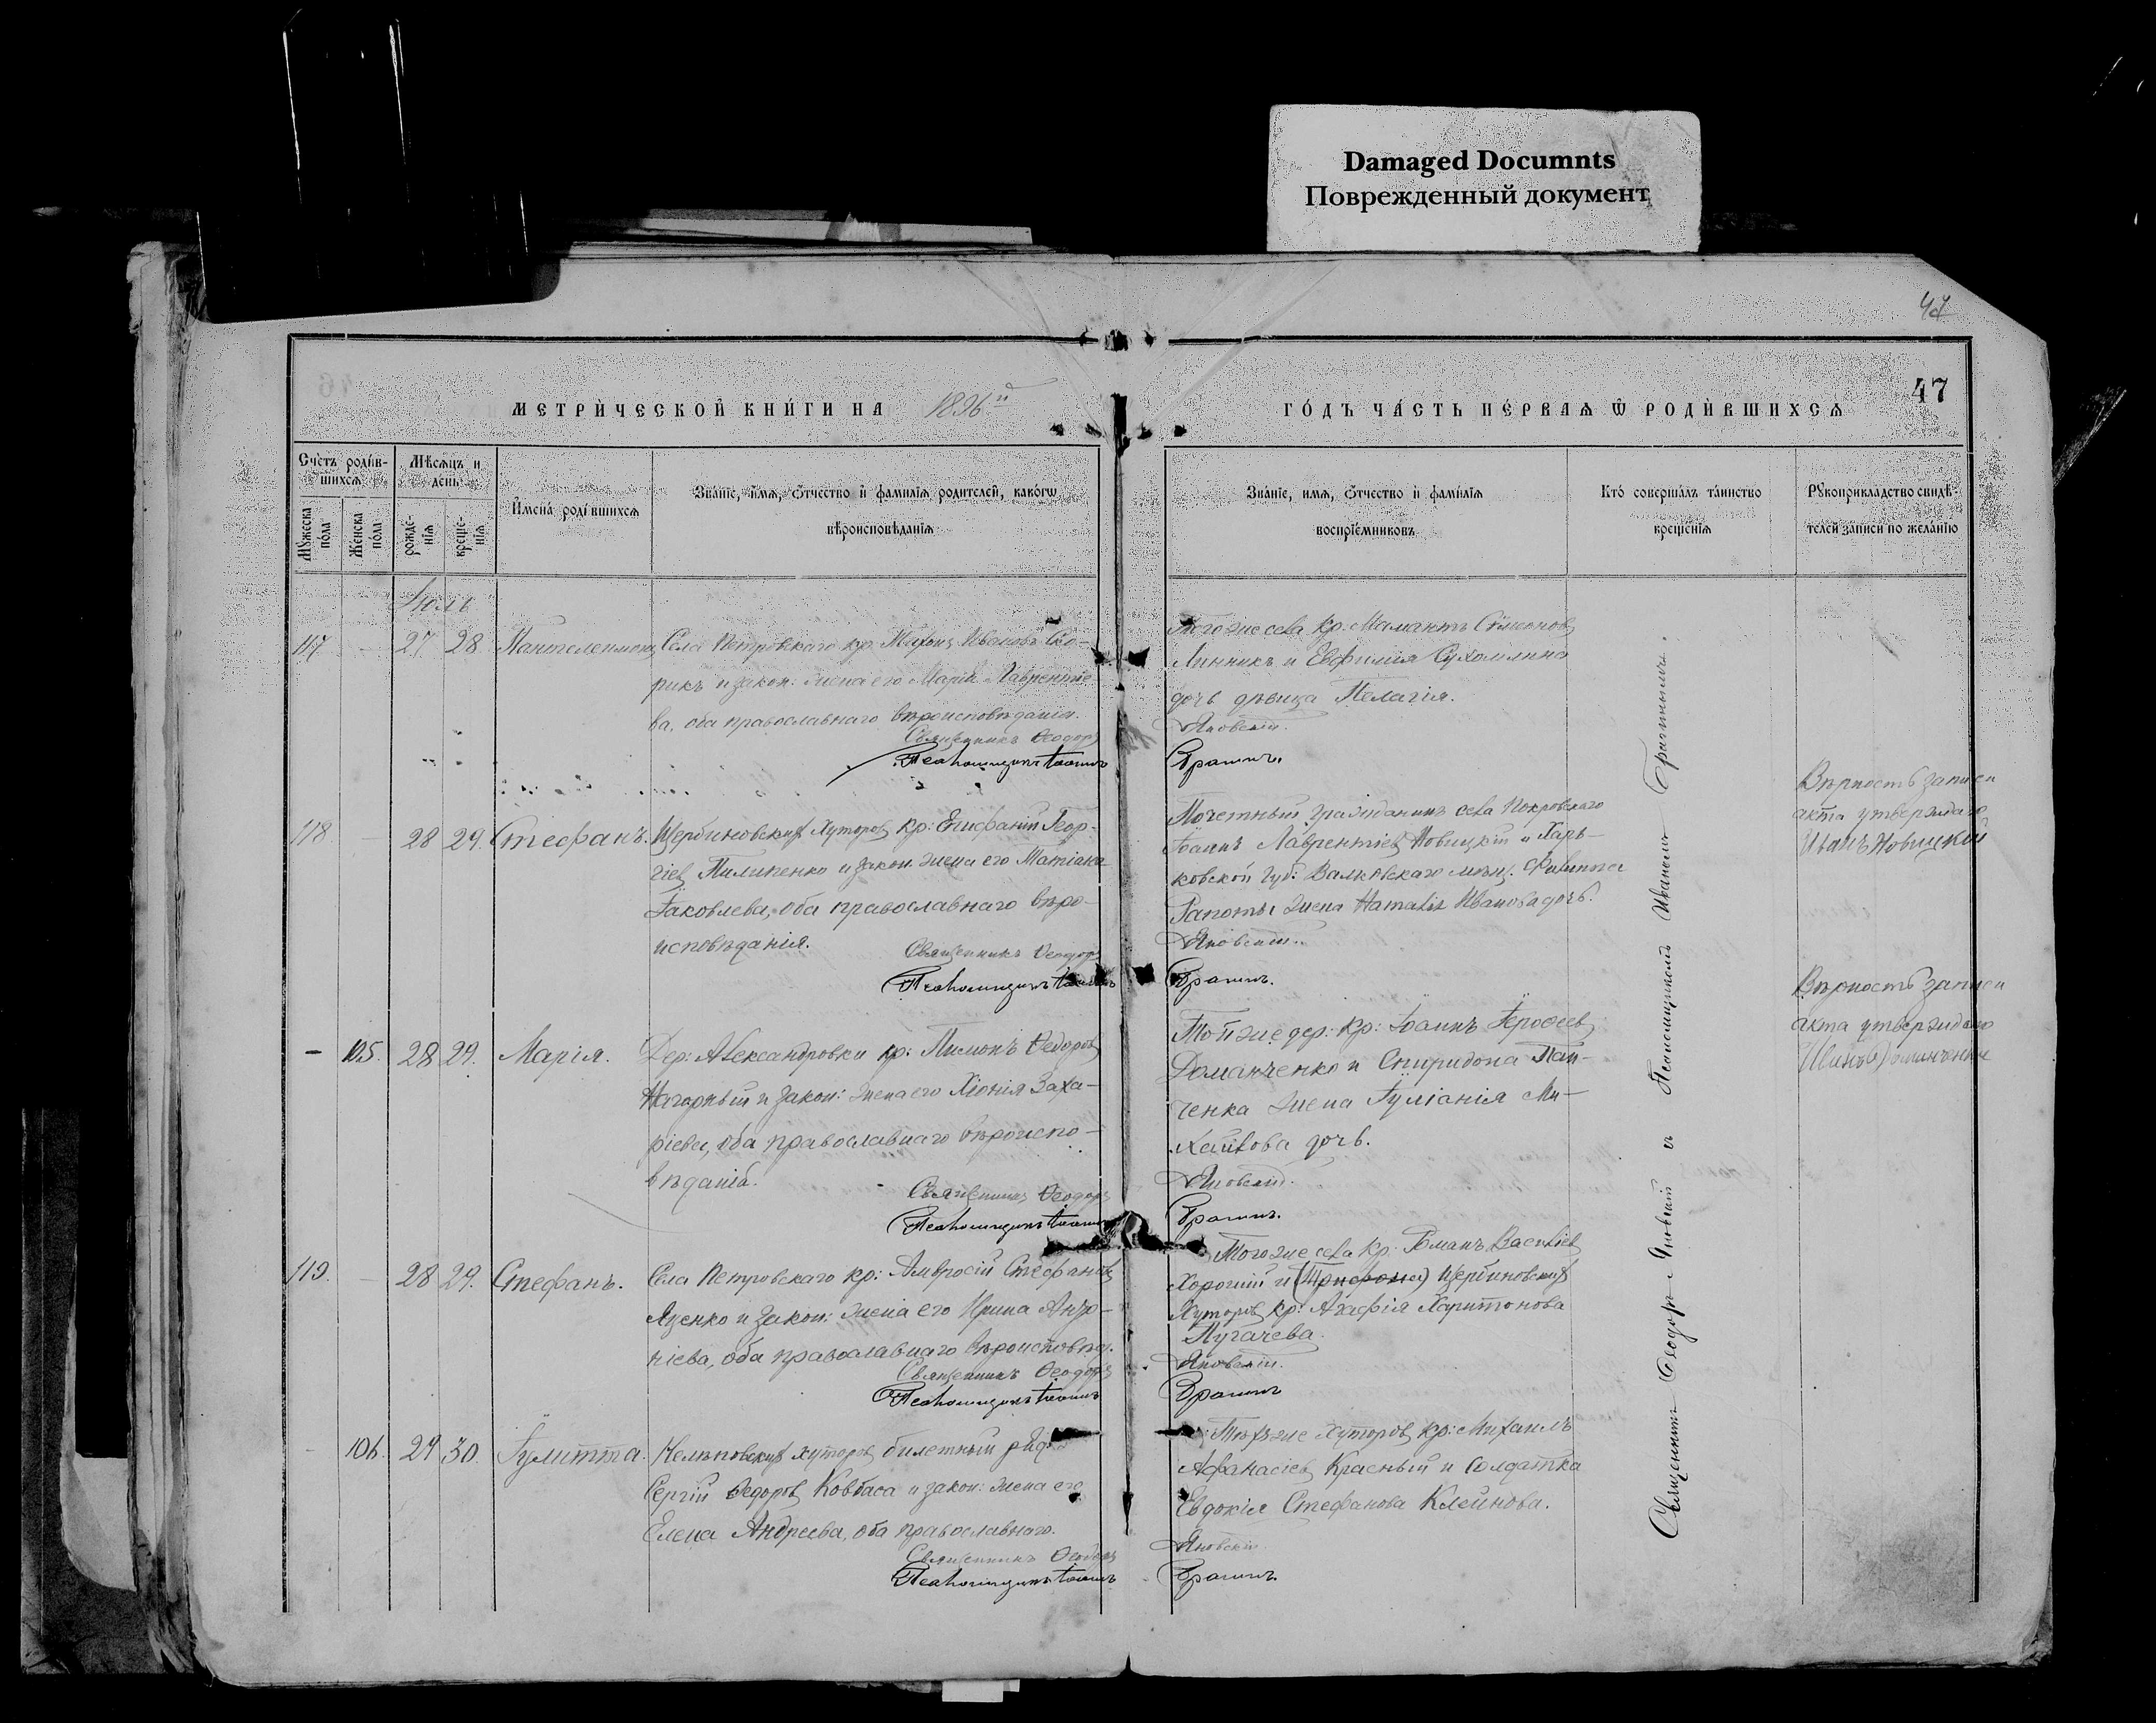 Damaged Documnts
Поврежденный документ
47
47
МЕТРИ́ЧЕСКОЙ КНИ́ГИ НА 1896й
ГО́ДЪ ЧА́СТЬ ПЕ́РВАѦ Ѿ РОДИ́ВШИХСѦ
Счетъ роди́в-
шихсѧ
Мꙋжеска
по́ла
Же́нска
пола
Мѣ́сѧцъ и
де́нь
рожде́-
нїѧ
креще́-
нїѧ
И҆мена̀ роди́вшихсѧ
Зва́нїе, и҆́мѧ, ѻ҆́тчество и҆ фами́лїѧ роди́телей, како́гѡ
вѣроисповѣ́данїѧ
Зва́нїе, и҆́мѧ, ѻ҆́тчество и҆ фами́лїѧ
воспрїе́мниковъ
Кто̀ соверша́лъ та́инство
креще́нїѧ
Рꙋкоприкла́дство свидѣ́-
телей за́писи по жела́нїю
Іюль
117 – 27 28 Пантелеимонъ
Села Петровскаго кр: Тихонъ Ивановъ Ско-
рикъ и закон: жена его Марія Лаврентіе
ва, оба православнаго вѣроисповѣданія.
Священникъ Ѳеодоръ
Псаломщикъ Іоаннъ
Тогоже села кр: Мамантъ Сѵмеоновъ
Линникъ и Евфимія Сухомлина
дочь дѣвица Пелагія.
Яновскій.
Братинъ.
118 – 28 29. Стефанъ.
Щербиновскихъ Хуторовъ кр: Епифаній Геор-
гіевъ Пилипенко и закон. жена его Татіана
Іаковлева, оба православнаго вѣро-
исповѣданія.
Священникъ Ѳеодоръ
Псаломщикъ Іоаннъ
Почетный гражданинъ села Покровскаго
Іоаннъ Лаврентіевъ Новицкій и Харь-
ковской губ: Валковскаго мѣщ. Филиппа
жена Наталія Иванова дочь.
Яновскій.
Братинъ.
Вѣрность записи
акта утверждаю
Иванъ Новицкій
– 105. 28 29. Марія.
Дер: Александровки кр: Пимонъ Ѳедоровъ
Нагорный и закон: жена его Хіонія Заха-
ріева, оба православнаго вѣроиспо-
вѣданія.
Священникъ Ѳеодоръ
Псаломщикъ Іоаннъ
Той же дер: кр: Іоаннъ Іероѳеевъ
Доманченко и Спиридона Пан-
ченка жена Іуліанія Ми-
хайлова дочь.
Яновскій.
Братинъ.
Вѣрность записи
акта утверждаю
Иванъ Доманченко
119. – 28 29. Стефанъ.
Села Петровскаго кр: Амвросій Стефановъ
Яценко и закон: жена его Ирина Андро-
ніева, оба православнаго вѣроисповѣд.
Священникъ Ѳеодоръ
Псаломщикъ Іоаннъ
Тогоже села кр: Романъ Василіевъ
Хорогній и (Трифона) Щербиновскихъ
Хуторовъ кр: Агафія Харитонова
Пугачева.
Яновскій.
Братинъ
– 106. 29 30. Іулитта.
хуторовъ билетный ряд.
Сергій Ѳедоровъ Ковбаса и закон: жена его
Елена Андреева, оба православнаго.
Священникъ Ѳеодоръ
Псаломщикъ Іоаннъ
Тѣхже Хуторовъ кр: Михаилъ
Афанасіевъ Красный и солдатка
Евдокія Стефанова Клейнова.
Яновскій.
Братинъ.
Священникъ Ѳеодоръ Яновскій и Псаломщикомъ Иваномъ Братинымъ.